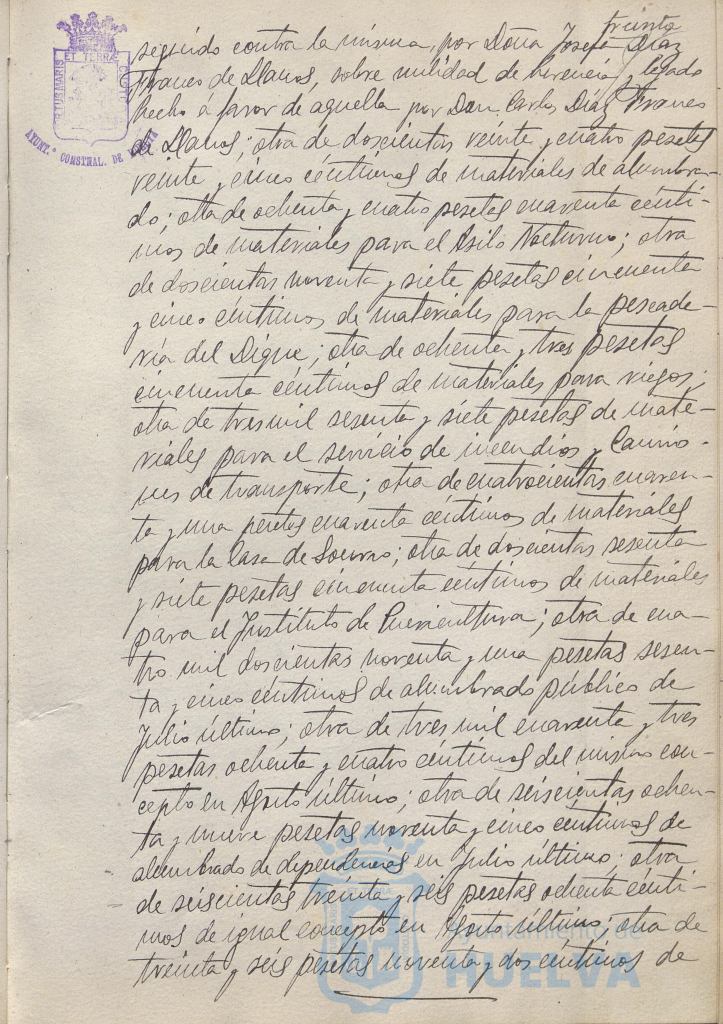 treinta
seguido contra la misma, por Doña Josefa Díaz
Franco de Llanos, sobre nulidad de herencia y legado
hecho á favor de aquella por Don Carlos Díaz Franco
de Llanos; otra de doscientas veinte y cuatro pesetas
veinte y cinco céntimos de materiales de alumbra-
do; otra de ochenta y cuatro pesetas cuarenta cénti-
mos de materiales para el Asilo Nocturno; otra
de doscientas noventa y siete pesetas cincuenta
y cinco céntimos de materiales para la pescade-
ría del Dique; otra de ochenta y tres pesetas
cincuenta céntimos de materiales para riegos;
otra de tres mil sesenta y siete pesetas de mate-
riales para el servicio de incendios y Camio-
nes de transporte; otra de cuatrocientas cuaren-
ta y una pesetas cuarenta céntimos de materiales
para la Casa de Socorro; otra de doscientas sesenta
y siete pesetas cincuenta céntimos de materiales
para el Instituto de Puericultura; otra de cua-
tro mil doscientas noventa y una pesetas sesen-
ta y cinco céntimos de alumbrado público de
Julio último; otra de tres mil cuarenta y tres
pesetas ochenta y cuatro céntimos del mismo con-
cepto en Agosto último; otra de seiscientas ochen-
ta y nueve pesetas noventa y cinco céntimos de
alumbrado de dependencias en Julio último; otra
de seiscientas treinta y seis pesetas ochenta cénti-
mos de igual concepto en Agosto último; otra de
treinta y seis pesetas noventa y dos céntimos de
ET TERRÆ
AYUNT.º CONSTNAL. DE HUELVA
Ayuntamiento de
HUELVA